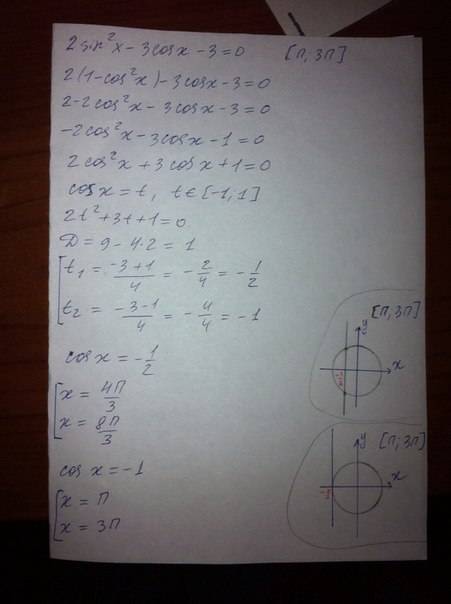 2sin²x - 3cosx - 3 = 0 [п; 3п]
2(1-cos²x) - 3cosx - 3 = 0
2 - 2cos²x - 3cosx - 3 = 0
-2cos²x - 3cosx - 1 = 0
2cos²x + 3cosx + 1 = 0
cosx = t, t ∈ [-1; 1]
2t² + 3t + 1 = 0
D = 9 - 4·2 = 1
[ t₁ = (-3+1)/4 = -2/4 = -1/2
t₂ = (-3-1)/4 = -4/4 = -1
[п; 3п]
y
x
cosx = -1/2
[ x = 4п/3
x = 8п/3
y [п; 3п]
x
-1
cosx = -1
[ x = п
x = 3п